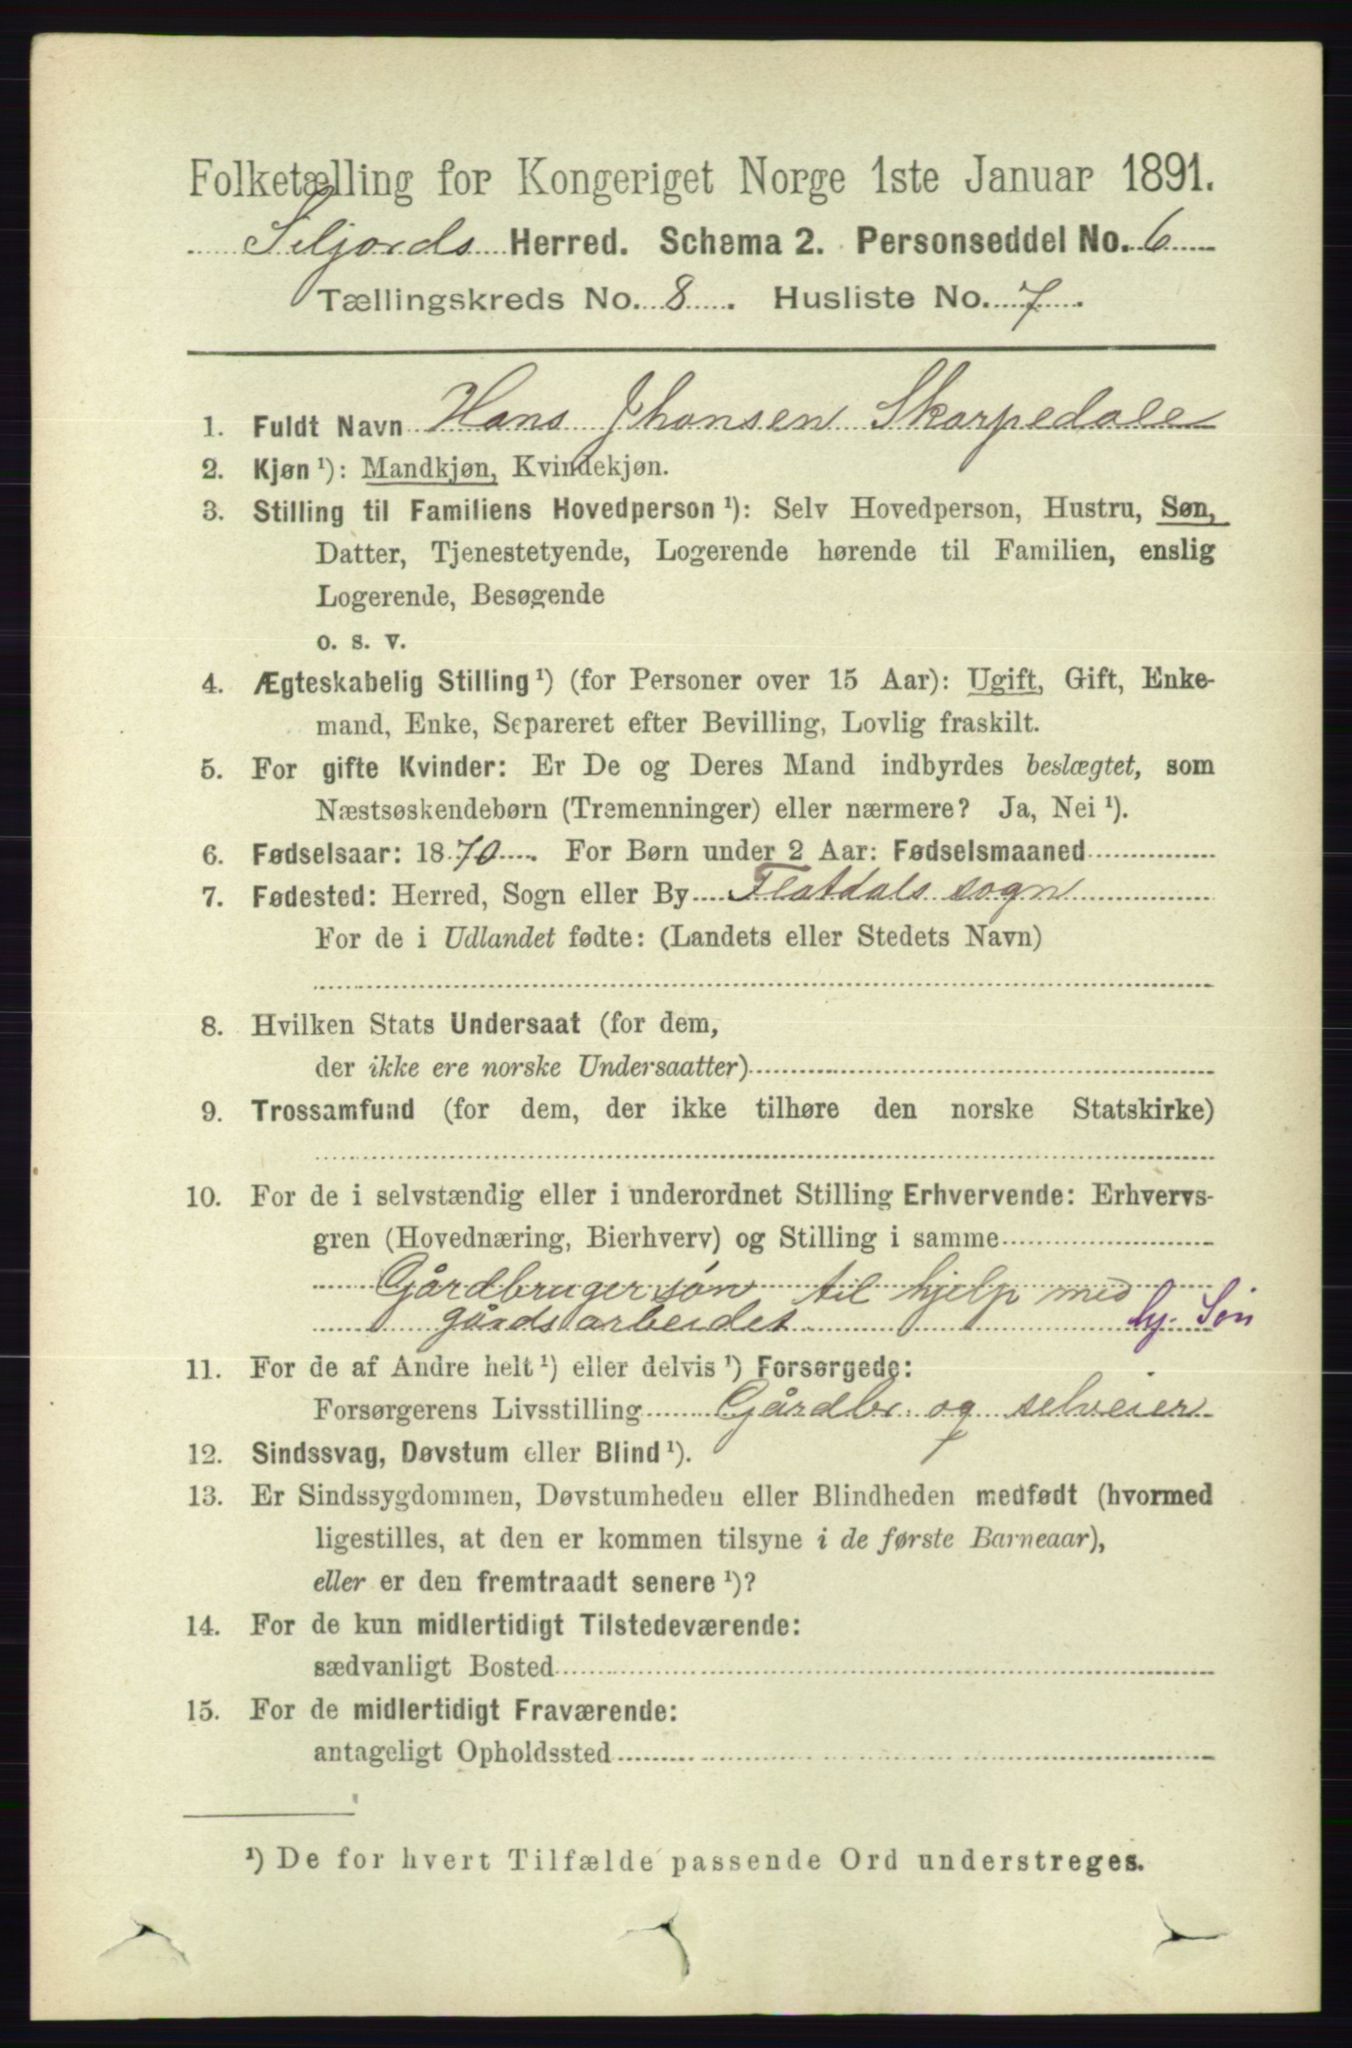 Folketælling for Kongeriget Norge 1ste Januar 1891.
Seljords Herred. Schema 2. Personseddel No. 6
Tællingskreds No. 8. Husliste No. 7.
1. Fuldt Navn Hans Jhansen Skarpedale
2. Kjøn ¹): Mandkjøn, Kvindekjøn.
3. Stilling til Familiens Hovedperson ¹): Selv Hovedperson, Hustru, Søn,
Datter, Tjenestetyende, Logerende hørende til Familien, enslig
Logerende, Besøgende
o. s. v.
4. Ægteskabelig Stilling ¹) (for Personer over 15 Aar): Ugift, Gift, Enke-
mand, Enke, Separeret efter Bevilling, Lovlig fraskilt.
5. For gifte Kvinder: Er De og Deres Mand indbyrdes beslægtet, som
Næstsøskendebørn (Tremenninger) eller nærmere? Ja, Nei ¹).
6. Fødselsaar: 1870. For Børn under 2 Aar: Fødselsmaaned
7. Fødested: Herred, Sogn eller By Flatdals sogn
For de i Udlandet fødte: (Landets eller Stedets Navn)
8. Hvilken Stats Undersaat (for dem,
der ikke ere norske Undersaatter)
9. Trossamfund (for dem, der ikke tilhøre den norske Statskirke)
10. For de i selvstændig eller i underordnet Stilling Erhvervende: Erhvervs-
gren (Hovednæring, Bierhverv) og Stilling i samme
Gårdbruger søn til hjelp med
gårdsarbeidet hj. Søn
11. For de af Andre helt ¹) eller delvis ¹) Forsørgede:
Forsørgerens Livsstilling Gårdbr. og selveier
12. Sindssvag, Døvstum eller Blind ¹).
13. Er Sindssygdommen, Døvstumheden eller Blindheden medfødt (hvormed
ligestilles, at den er kommen tilsyne i de første Barneaar),
eller er den fremtraadt senere ¹)?
14. For de kun midlertidigt Tilstedeværende:
sædvanligt Bosted
15. For de midlertidigt Fraværende:
antageligt Opholdssted
¹) De for hvert Tilfælde passende Ord understreges.